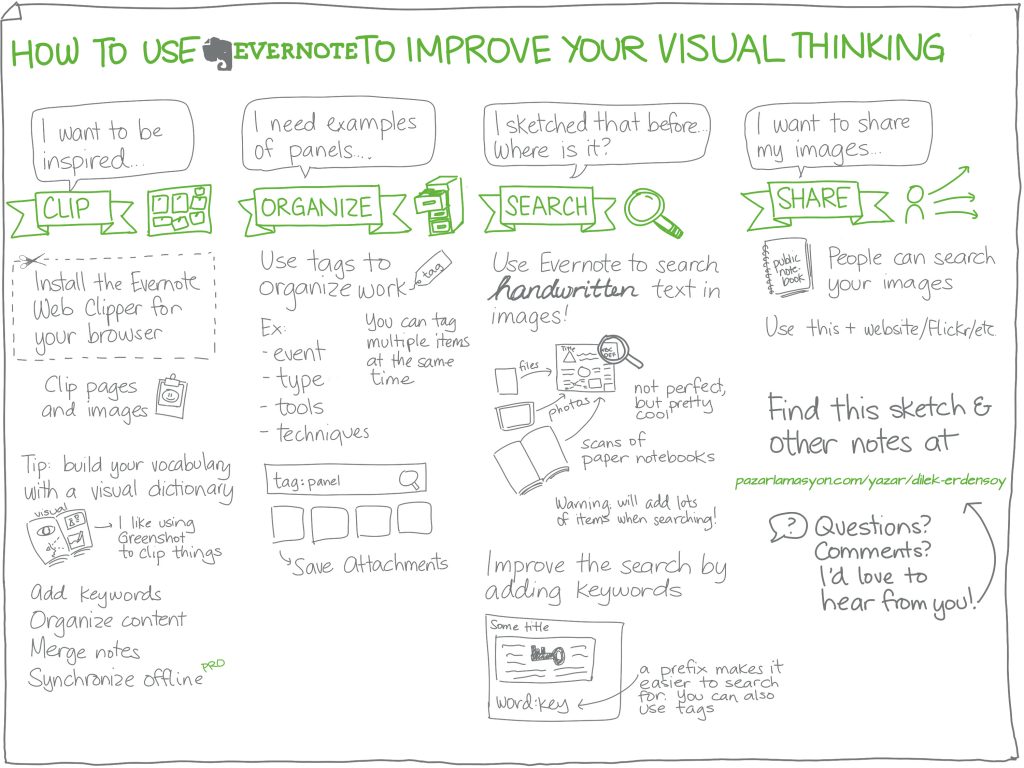 HOW TO USE EVERNOTE TO IMPROVE YOUR VISUAL THINKING
I want to be
inspired...
CLIP
Install the Evernote
Web Clipper for
your browser
Clip pages
and images
Tip: build your vocabulary
with a visual dictionary
visual
I like using
Greenshot
to clip things
Add keywords
Organize content
Merge notes
Synchronize offline PRO
I need examples
of panels....
ORGANIZE
Use tags to
organize work
tag
Ex:
- event
- type
- tools
- techniques
You can tag
multiple items
at the same
time
tag: panel
Save Attachments
I sketched that before...
Where is it?
SEARCH
Use Evernote to search
handwritten text in
images!
files
photos
Title
ABC
DEF
not perfect,
but pretty
cool
scans of
paper notebooks
Warning: will add lots
of items when searching!
Improve the search by
adding keywords
Some title
word:key
a prefix makes it
easier to search
for. You can also
use tags
I want to share
my images...
SHARE
public
note-
book
People can search
your images
Use this + website/Flickr/etc.
Find this sketch &
other notes at
pazarlamasyon.com/yazar/dilek-erdensoy
?
Questions?
Comments?
I'd love to
hear from you!